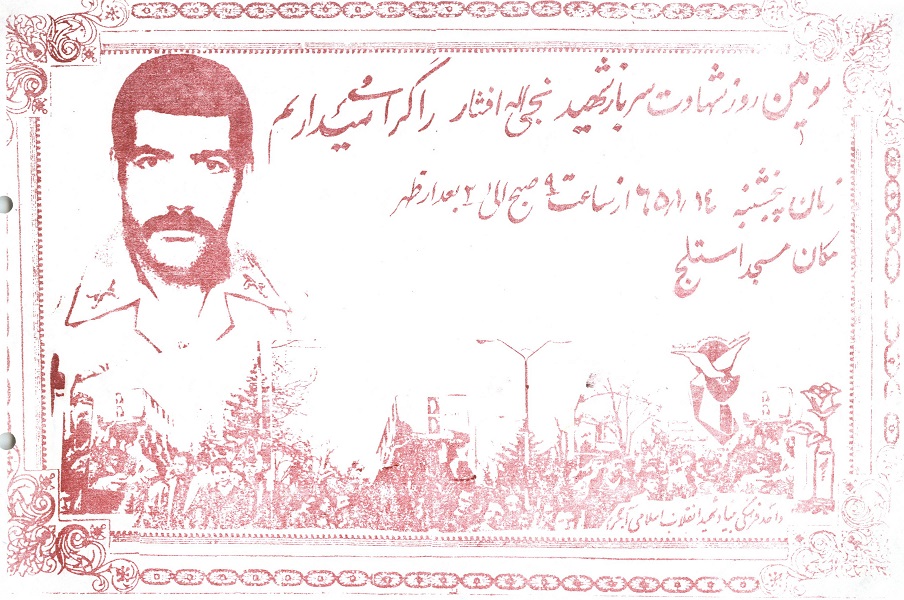 سومین روز شهادت سرباز شهید نجی اله افشار را گرامی میداریم
زمان پنجشنبه ٦٥/١/١٤ از ساعت ٩ صبح الی ٢ بعد از ظهر
مکان مسجد استلج
واحد فرهنگی بنیاد شهید انقلاب اسلامی